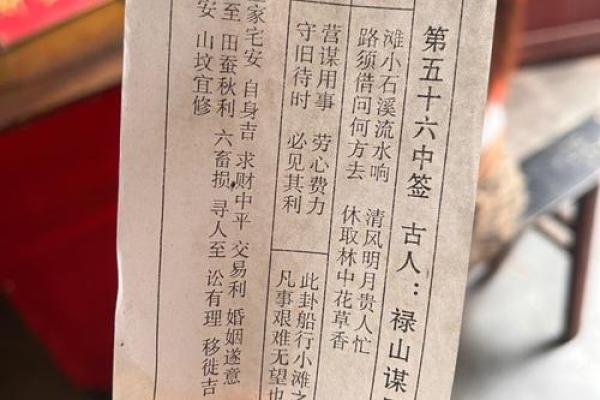 第五十六中签 古人：禄山谋
滩小石溪流水响 清风明月贵人忙
路须借问何方去 休取林中花草香
营谋用事 劳心费力
守旧待时 必见其利
此卦船行小滩之
凡事艰难无望也
家宅安 自身吉 求财中平 交易利 婚姻遂意
至 田蚕秋利 六畜损 寻人至 讼有理 移徙吉
安 山坟宜修